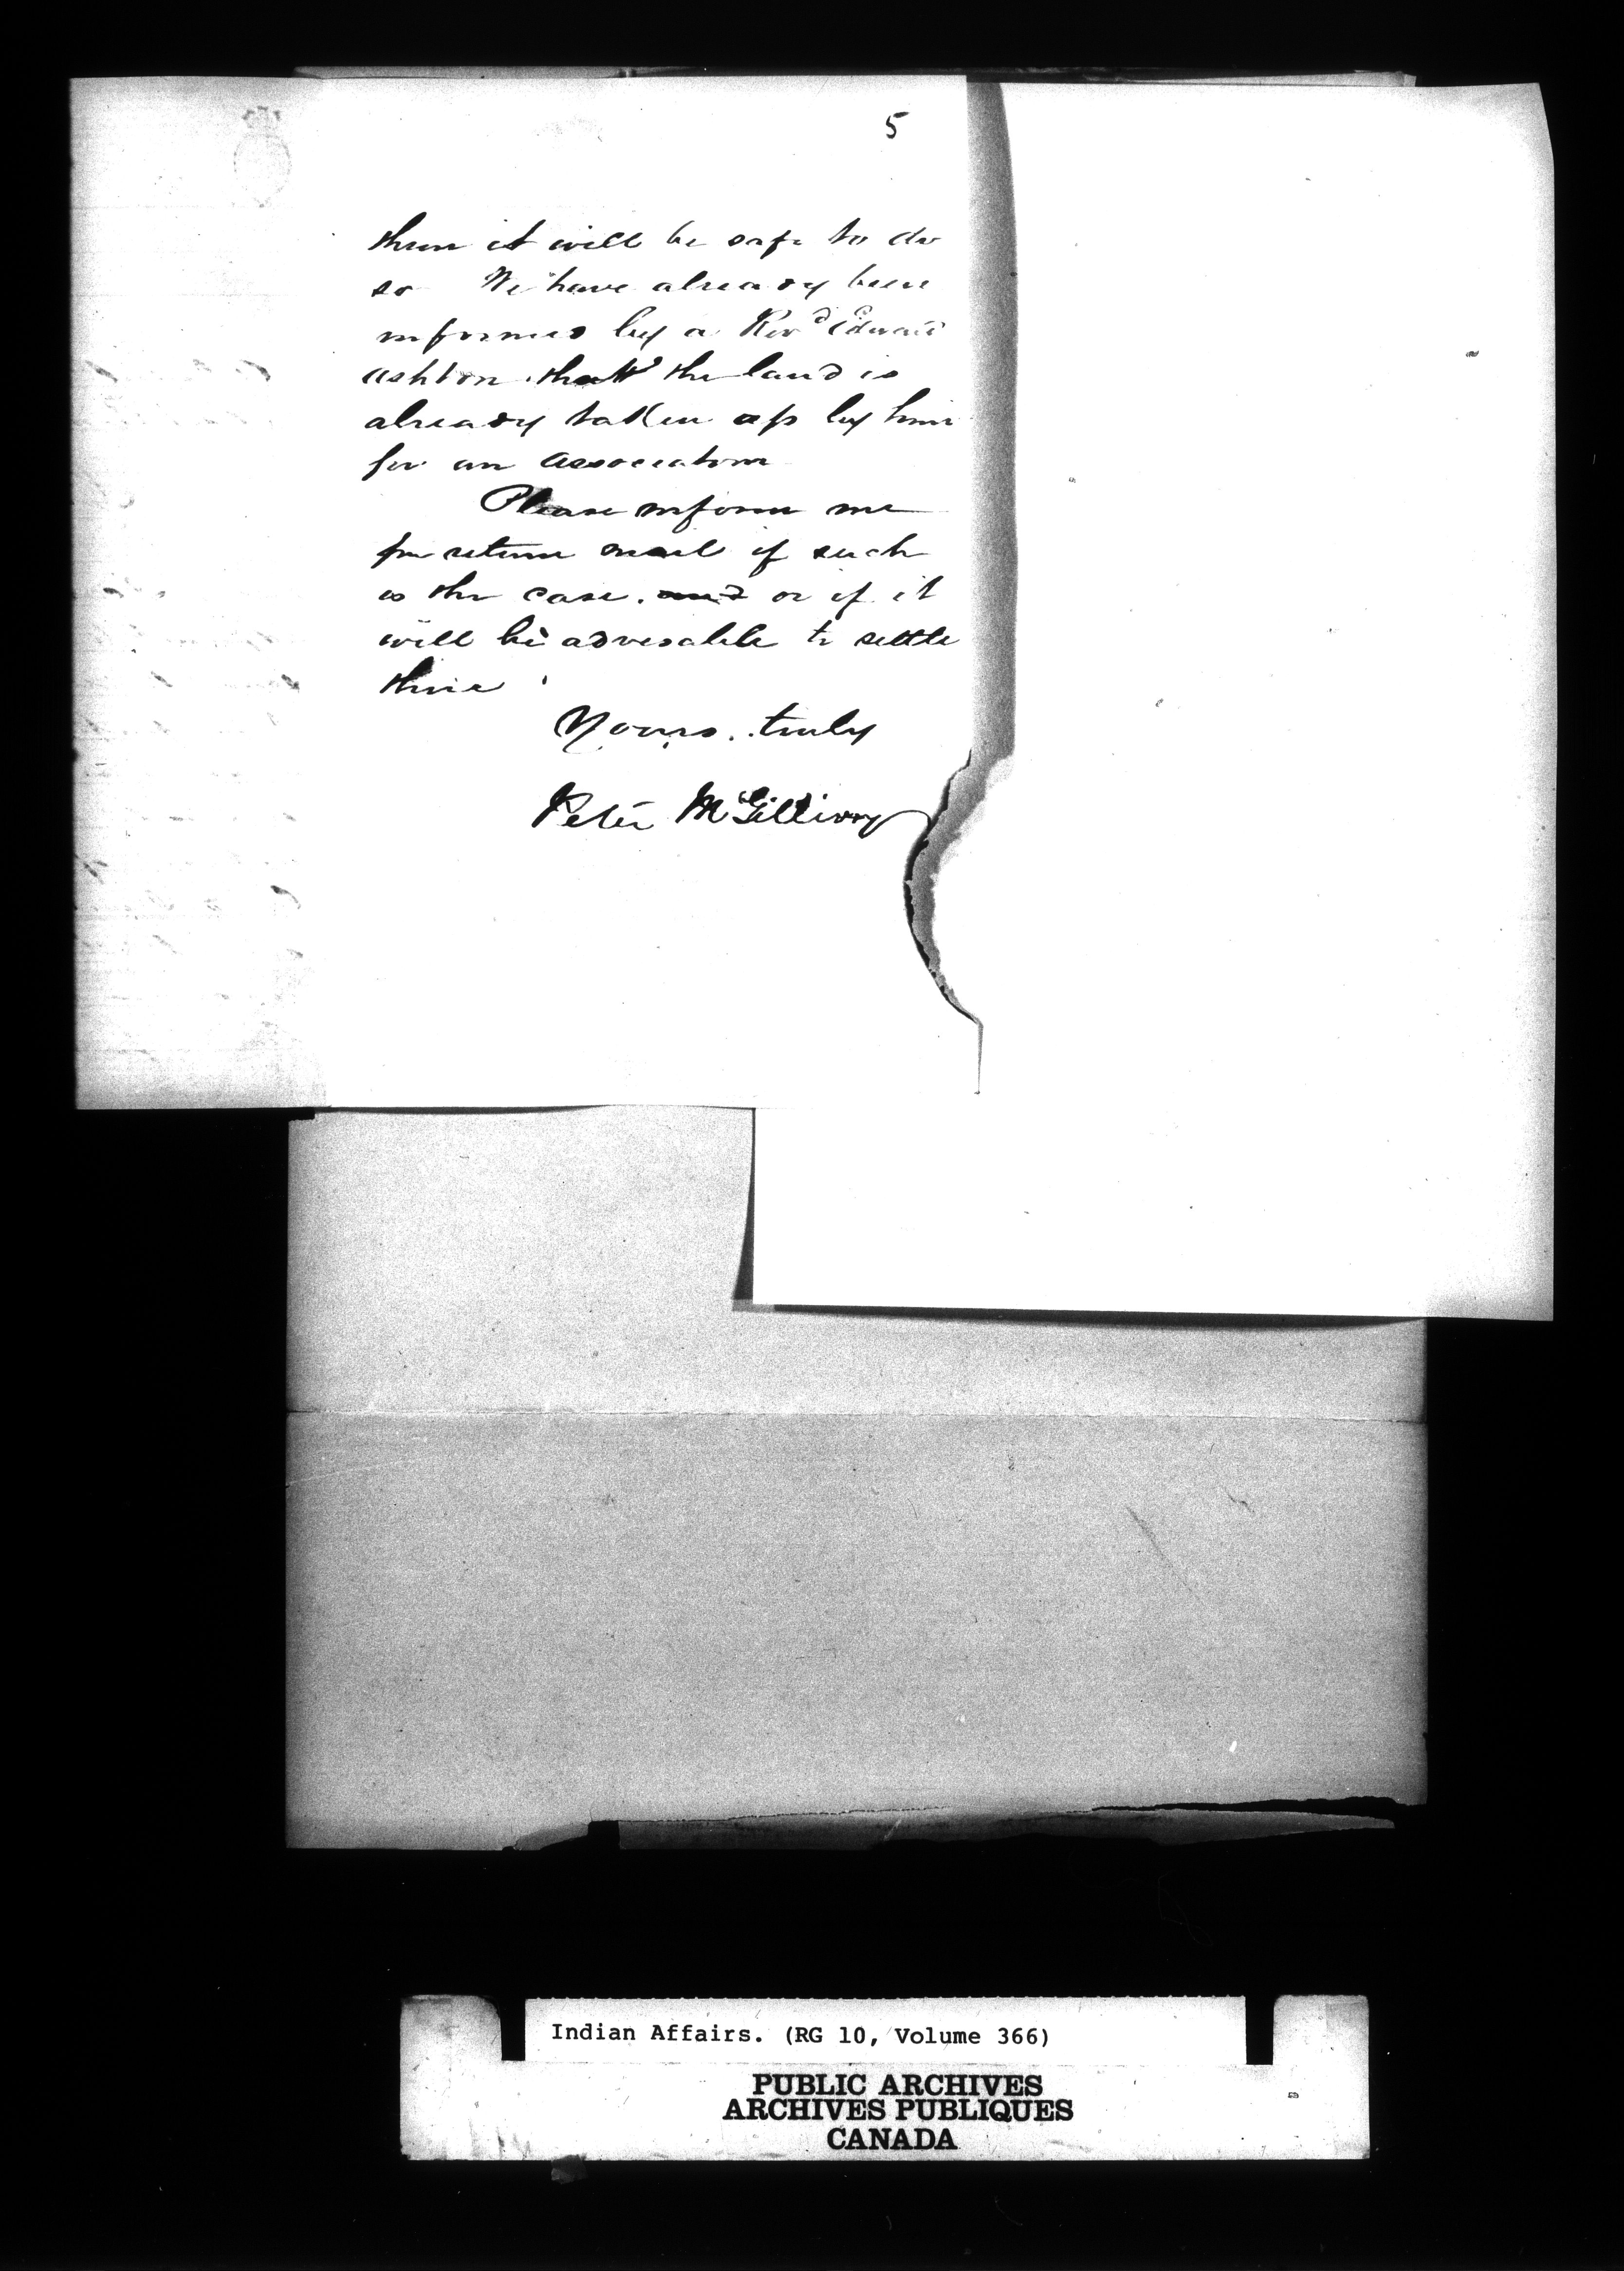 5
then it will be safe to do
so We have already been
informed by a Revd Edward
Ashton that the land is
already taken up by him
for an Association
Please inform me
per return mail if such
is the case. and or if it
will be advesable to settle
there
Yours. truly
Peter McGillivry
Indian Affairs. (RG 10, Volume 366)
PUBLIC ARCHIVES
ARCHIVES PUBLIQUES
CANADA